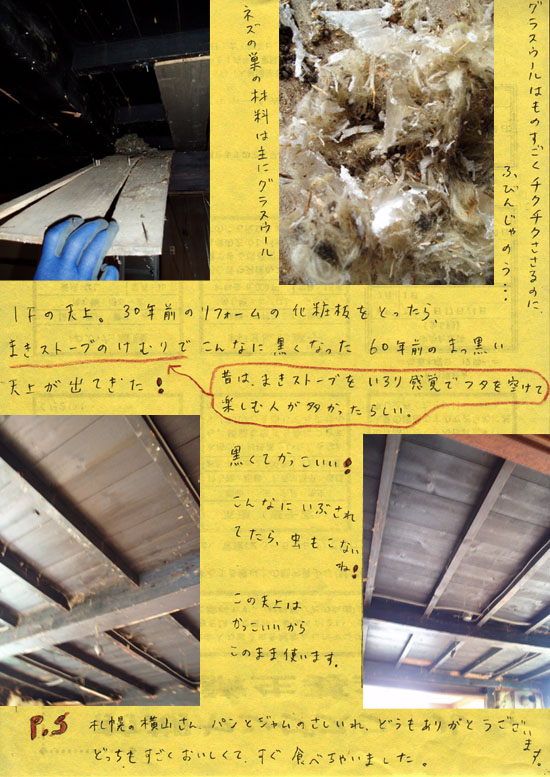 グラスウールはものすごくチクチクささるのに、
ふびんじゃのう・・・
ネズの巣の材料は主にグラスウール
1Fの天上。30年前のリフォームの化粧板をとったら、
まきストーブのけむりでこんなに黒くなった60年前のまっ黒い
天上が出てきた!
昔は、まきストーブをいろり感覚でフタを空けて
楽しむ人が多かったらしい。
黒くてかっこいい!
こんなにいぶされ
てたら、虫もこない
ね!
この天上は
かっこいいから
このまま使います。
P.S 札幌の横山さん、パンとジャムのさしいれ、どうもありがとうござい
ます。
どっちもすごくおいしくて、すぐ食べちゃいました。